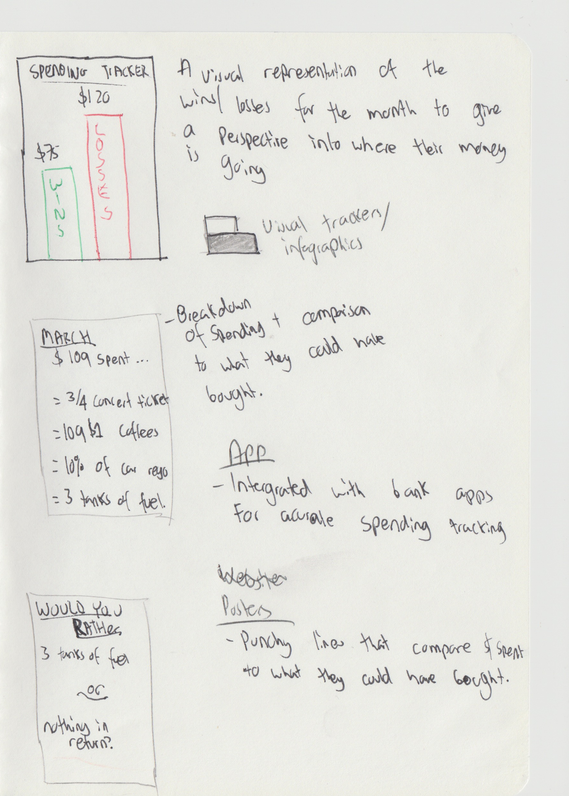 SPENDING TRACKER
$120
$75
WINS
LOSSES
A visual representation of the
wins/ losses for the month to give
a perspective into where their money
is going
Visual tracker/
infographics
MARCH
$109 spent...
= 3/4 concert ticket
= 109 $1 coffees
= 10% of car rego
= 3 tanks of fuel.
- Breakdown
of spending + comparison
to what they could have
bought.
App
- Intergrated with bank apps
for accurate spending tracking
Website
Posters
- Punchy lines that compare $ spent
to what they could have bought.
WOULD YOU
RATHER
3 tanks of fuel
or
nothing in
return?